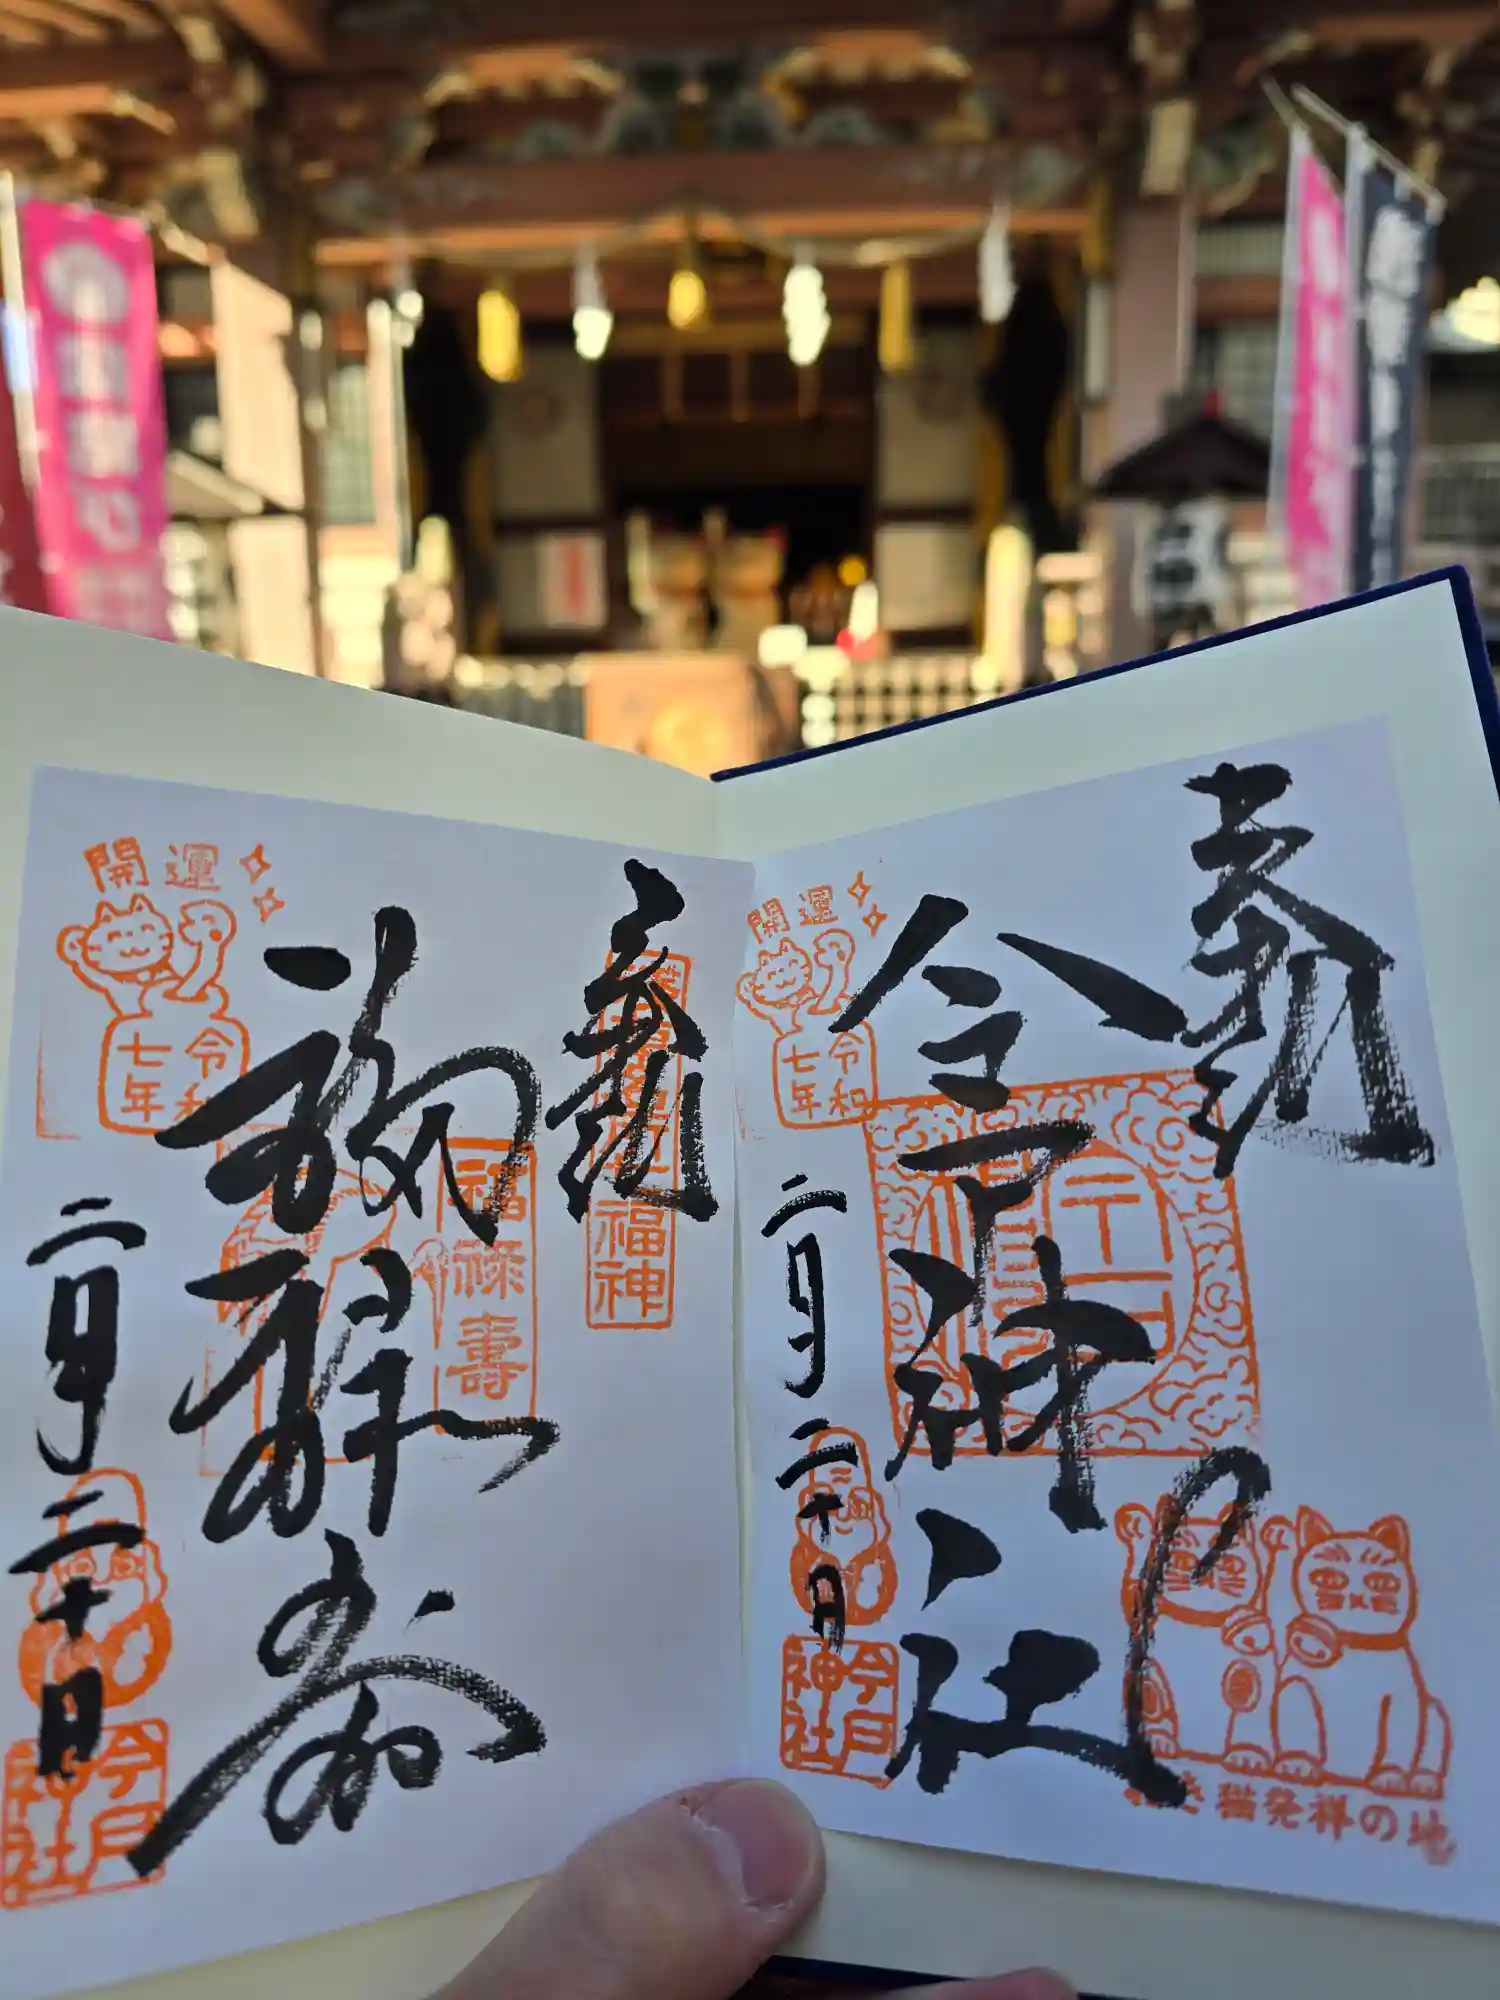 奉拝
今戸神社
開運
令和
七年
二月二十日
今戸
神社
招き猫発祥の地
奉拝
福禄寿
福禄壽
福神
開運
令和
七年
二月二十日
今戸
神社